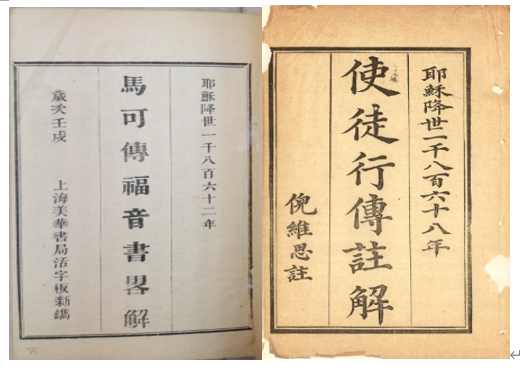 耶穌降世一千八百六十二年
馬可傳福音書畧解
歲次壬戌 上海美華書局活字板新鐫
耶穌降世一千八百六十八年
使徒行傳註解
倪維思註